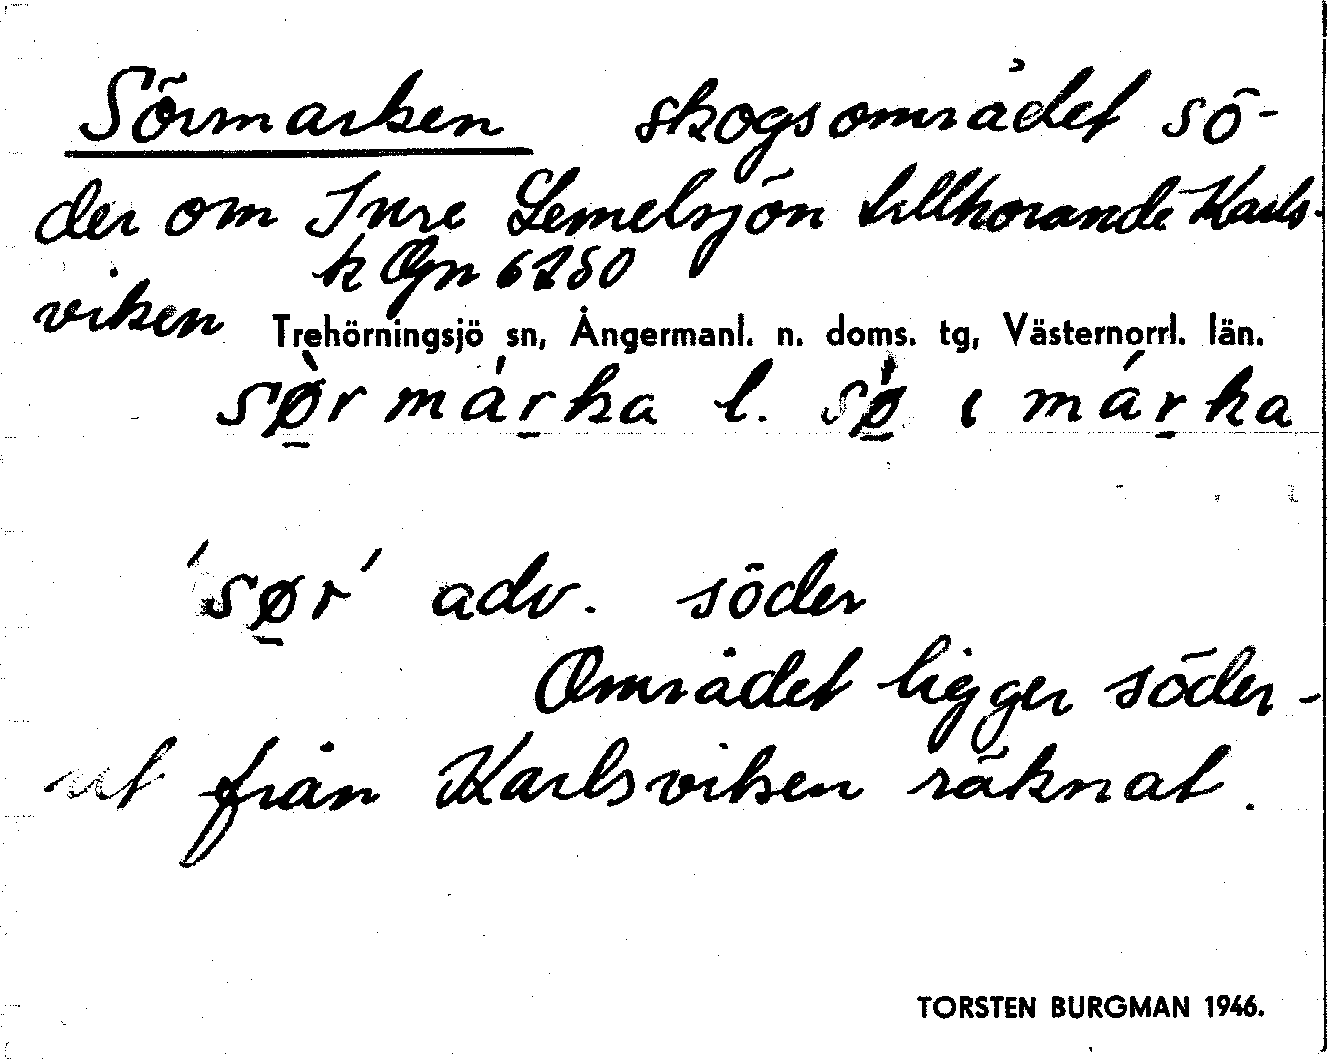 Sörmarken skogsområdet sö-
der om Inre Lemelsjön tillhörande Karls-
k Ögn 6250
viken
Trehörningsjö sn, Ångermanl. n. doms. tg, Västernorrl. län.
sø̠̀r má̠rka l. sø̠̀ ɩ má̠rka
'sø̠r' adv. söder
Området ligger söder-
ut från Karlsviken räknat.
TORSTEN BURGMAN 1946.